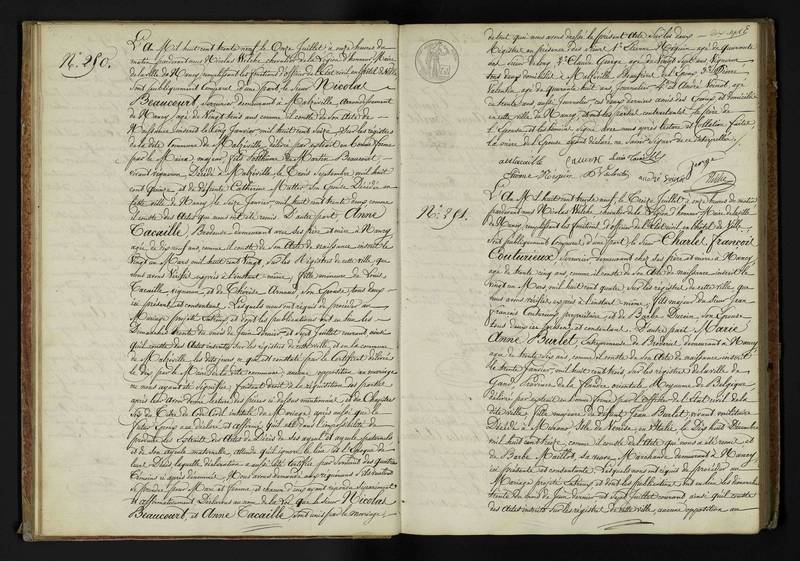 N.º 250.
L'An Mil huit cent trente neuf, le Onze Juillet à onze heures du
matin pardevant nous Nicolas Welche, chevalier de la Légion d'honneur, Maire
de la ville de Nancy, remplissant les fonctions d'officier de l'état civil en l'hôtel de Ville
sont publiquement comparus d'une part, le Sieur Nicolas
Beaucourt, demeurant à Malzéville, Arrondissement
de Nancy, âgé de Vingt trois ans comme il conste de son Acte de
Naissance inscrit le Janvier mil huit cent Seize, sur les registres
de la dite Commune de Malzéville, délivré par extrait en bonne forme
par le Maire, majeur, fils de Martin Beaucourt,
vivant vigneron, Décédé à Malzéville, le Trois Septembre mil huit
cent Quinze, et de défunte Catherine Decédée en
cette ville de Nancy, le Janvier mil huit cent trente comme
il conste des Actes qui nous ont été remis. D'autre part Anne
Tacaille, Brodeuse demeurant avec ses père et mère à Nancy
âgée de dix neuf ans comme il conste de son Acte de naissance inscrit le
Vingt un Mars mil huit cent Vingt, sur les Registres de cette ville que
nous avons vérifié exprès à l'instant même, fille mineure de Louis
Tacaille, vigneron, et de Thérèse son Epouse tous deux
ici présents et consentans. Lesquels nous ont requis de procéder au
Mariage projeté entr'eux et dont les publications ont eu lieu les
Dimanches trente du mois de Juin dernier et sept Juillet courant, ainsi
qu'il conste des Actes inscrits sur les registres de cette ville, et en la commune
de Malzéville les dits jours, ce qui est constaté par le Certificat délivré
le dix par le Maire de la dite commune, aucune opposition au mariage
ne nous ayant été signifiée, faisant droit à la réquisition des parties
après leur avoir donné lecture des pièces ci dessus mentionnées, et du Chapitre
six du Titre du Code Civil intitulé du Mariage, après aussi que le
futur Epoux a déclaré et affirmé qu'il est dans l'impossibilité de
produire les extraits des Actes de Décès de ses ayeul et ayeule paternels
et de son ayeule maternelle, attendu qu'il ignore le lieu et l'Epoque de
leur Décès, laquelle déclaration a aussi été certifiée par serment des quatre
témoins ci après dénommés. Nous avons demandé aux requérants s'ils veulent
se prendre pour Mari et femme et chacun d'eux ayant répondu séparément
et affirmativement Déclarons au nom de la Loi que le Sieur Nicolas
Beaucourt, et Anne Tacaille, sont unis par le mariage,
de tout quoi nous avons dressé le présent Acte sur les deux
Registres en présence des Sieurs 1º Etienne Hoquin, âgé de quarante
ans 2º Claude George, âgé de Vingt Sept ans, Vigneron
tous deux domiciliés à Malzéville, 3º
Valentin, âgé de quarante huit ans, Journalier, 4º et André Voinot, âgé
de trente ans aussi Journalier, ces deux derniers amis des Epoux et domiciliés
en cette ville de Nancy, dont les parties contractantes, le père de
l'Epouse et les témoins signé avec nous après lecture et Collation faites,
la mère de l'Epouse ayant déclaré ne savoir Signer de ce interpellée.
Valentin George
Welche
N.º 251.
L'An Mil huit cent trente neuf, le Treize Juillet, à onze heures du matin
pardevant nous Nicolas Welche, chevalier de la Légion d'honneur, Maire de la ville
de Nancy, remplissant les fonctions d'officier de l'Etat civil en l'hôtel de Ville
sont publiquement Comparus d'une part le Sieur Charles François
Couturieux, Serrurier demeurant chez ses père et mère à Nancy,
âgé de trente cinq ans, comme il conste de son Acte de naissance inscrit le
vingt un Mars mil huit cent quatre, sur les registres de cette ville que
nous avons vérifié exprès à l'instant même, fils majeur du Sieur Jean
François Couturieux, propriétaire, et de Barbe son Epouse
tous deux ici présents et consentans. D'autre part Marie
Anne Burlet, Entrepreneuse de Broderie, demeurant à Nancy,
âgée de trente six ans, comme il conste de son Acte de naissance inscrit
le trente Janvier, mil huit cent trois, sur les registres de la ville de
Gand, Province de la flandre orientale, Royaume de Belgique,
Délivré par extrait en bonne forme par l'officier de l'Etat civil de la
dite ville, fille majeure de défunt Jean Burlet, vivant militaire
Décédé à Murano Isle de Venise, en Italie, le Dix huit Décembre
mil huit cent treize, comme il conste de l'Acte qui nous a été remis et
de Barbe Maillot, sa veuve, Marchande demeurant à Nancy,
ici présente et consentante. Lesquels nous ont requis de procéder au
Mariage projeté entr'eux et dont les publications ont eu lieu les dimanches
trente du mois de Juin dernier et sept Juillet courant, ainsi qu'il conste
des Actes inscrits sur les registres de cette ville, aucune opposition au